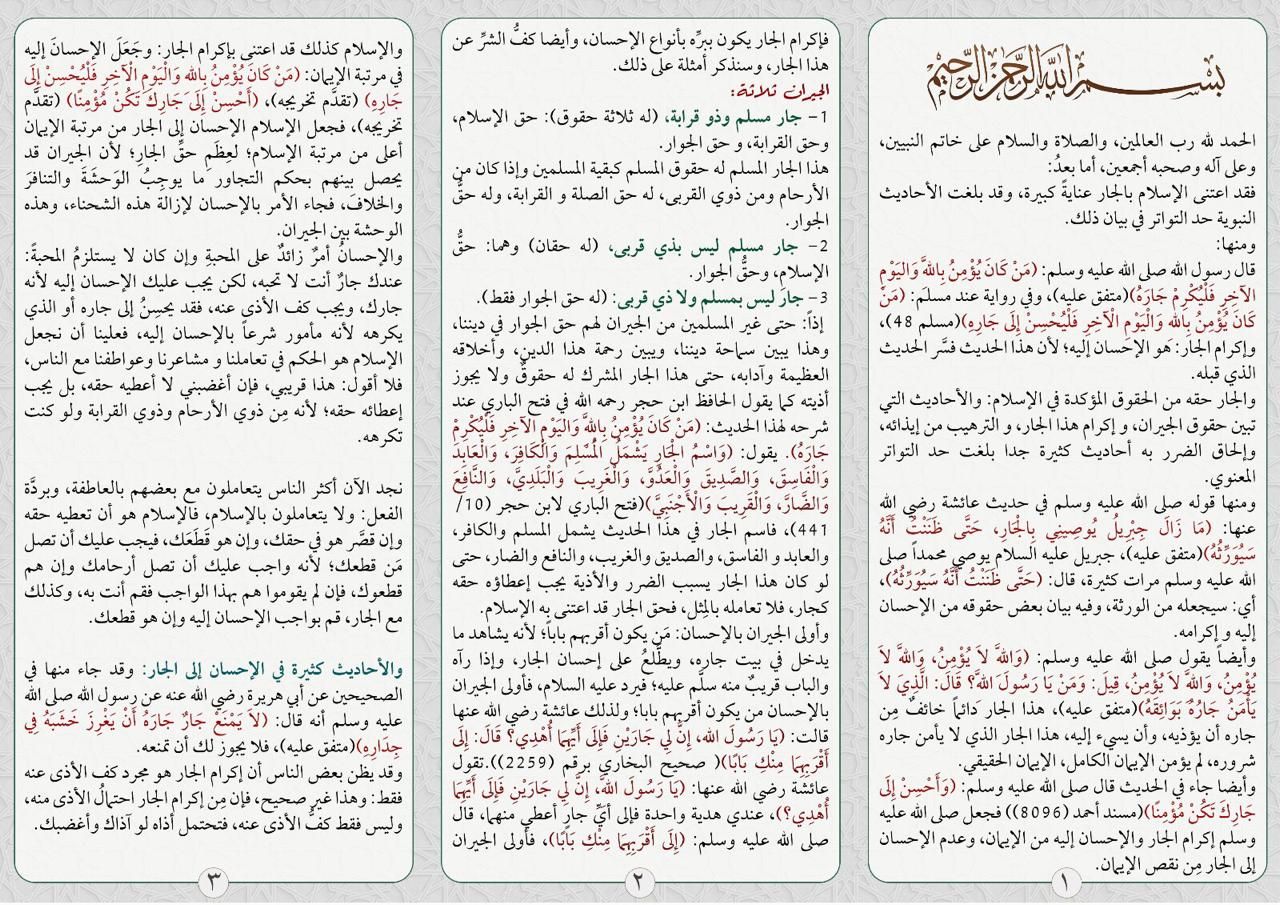 بسم الله الرحمن الرحيم
الحمد لله رب العالمين، والصلاة والسلام على خاتم النبيين،
وعلى آله وصحبه أجمعين، أما بعدُ:
فقد اعتنى الإسلام بالجار عنايةً كبيرة، وقد بلغت الأحاديث
النبوية حد التواتر في بيان ذلك.
ومنها:
قال رسول الله صلى الله عليه وسلم: (مَنْ كَانَ يُؤْمِنُ بِاللهِ وَاليَوْمِ
الآخِرِ فَلْيُكْرِمْ جَارَهُ)(متفق عليه)، وفي رواية عند مسلم: (مَنْ
كَانَ يُؤْمِنُ بِالله وَالْيَوْمِ الْآخِرِ فَلْيُحْسِنْ إِلَى جَارِهِ)(مسلم 48)،
وإكرام الجار: هو الإحسان إليه؛ لأن هذا الحديث فسَّر الحديث
الذي قبله.
والجار حقه من الحقوق المؤكدة في الإسلام: والأحاديث التي
تبين حقوق الجيران، و إكرام هذا الجار، و الترهيب من إيذائه،
وإلحاق الضرر به أحاديث كثيرة جدا بلغت حد التواتر
المعنوي.
ومنها قوله صلى الله عليه وسلم في حديث عائشة رضي الله
عنها: (مَا زَالَ جِبْرِيلُ يُوصِينِي بِالْجَارِ، حَتَّى ظَنَنْتُ أَنَّهُ
سَيُوَرِّثُهُ)(متفق عليه)، جبريل عليه السلام يوصي محمداً صلى
الله عليه وسلم مرات كثيرة، قال: (حَتَّى ظَنَنْتُ أَنَّهُ سَيُوَرِّثُهُ)،
أي: سيجعله من الورثة، وفيه بيان بعض حقوقه من الإحسان
إليه و إكرامه.
وأيضاً يقول صلى الله عليه وسلم: (وَاللهُ لاَ يُؤْمِنُ، وَاللهُ لاَ
يُؤْمِنُ، وَاللهُ لاَ يُؤْمِنُ، قِيلَ: وَمَنْ يَا رَسُولَ اللهِ؟ قَالَ: الَّذِي لاَ
يَأْمَنُ جَارُهُ بَوَائِقَهُ)(متفق عليه)، هذا الجار دائماً خائفٌ مِن
جاره أن يؤذيه، وأن يسيء إليه، هذا الجار الذي لا يأمن جاره
شروره، لم يؤمن الإيمان الكامل، الإيمان الحقيقي.
وأيضا جاء في الحديث قال صلى الله عليه وسلم: (وَأَحْسِنْ إِلَى
جَارِكَ تَكُنْ مُؤْمِنًا)(مسند أحمد (8096)) فجعل صلى الله عليه
وسلم إكرام الجار والإحسان إليه من الإيمان، وعدم الإحسان
إلى الجار مِن نقص الإيمان.
١
فإكرام الجار يكون ببرِّه بأنواع الإحسان، وأيضا كفُّ الشرِّ عن
هذا الجار، وسنذكر أمثلة على ذلك.
الجيران ثلاثة:
1- جار مسلم وذو قرابة، (له ثلاثة حقوق): حق الإسلام،
وحق القرابة، و حق الجوار.
هذا الجار المسلم له حقوق المسلم كبقية المسلمين وإذا كان من
الأرحام ومن ذوي القربى، له حق الصلة و القرابة، وله حقُّ
الجوار.
2- جار مسلم ليس بذي قربى، (له حقان) وهما: حقُّ
الإسلام، وحقُّ الجوار.
3- جارَ ليس بمسلم ولا ذي قربى: (له حق الجوار فقط).
إذاً: حتى غير المسلمين من الجيران لهم حق الجوار في ديننا،
وهذا يبين سماحة ديننا، ويبين رحمة هذا الدين، وأخلاقه
العظيمة وآدابه، حتى هذا الجار المشرك له حقوقٌ ولا يجوز
أذيته كما يقول الحافظ ابن حجر رحمه الله في فتح الباري عند
شرحه لهذا الحديث: (مَنْ كَانَ يُؤْمِنُ بِاللهِ وَاليَوْمِ الآخِرِ فَلْيُكْرِمْ
جَارَهُ). يقول: (وَاسْمُ الْجَارِ يَشْمَلُ الْمُسْلِمَ وَالْكَافِرَ، وَالْعَابِدَ
وَالْفَاسِقَ، وَالصَّدِيقَ وَالْعَدُوَّ، وَالْغَرِيبَ وَالْبَلَدِيَّ، وَالنَّافِعَ
وَالضَّارَّ، وَالْقَرِيبَ وَالْأَجْنَبِيَّ)(فتح الباري لابن حجر (10/
441)، فاسم الجار في هذا الحديث يشمل المسلم والكافر،
والعابد و الفاسق، والصديق والغريب، والنافع والضار، حتى
لو كان هذا الجار يسبب الضرر والأذية يجب إعطاؤه حقه
كجار، فلا تعامله بالمِثل، فحق الجار قد اعتنى به الإسلام.
وأولى الجيران بالإحسان: مَن يكون أقربهم باباً؛ لأنه يشاهد ما
يدخل في بيت جاره، ويطَّلعُ على إحسان الجار، وإذا رآه
والباب قريبٌ منه سلَّم عليه؛ فيرد عليه السلام، فأولى الجيران
بالإحسان من يكون أقربهم بابا؛ ولذلك عائشة رضي الله عنها
قالت: (يَا رَسُولَ الله، إِنَّ لِي جَارَيْنِ فَإِلَى أَيِّهِمَا أُهْدِي؟ قَالَ: إِلَى
أَقْرَبِهِمَا مِنْكِ بَابًا)( صحيح البخاري برقم (2259)).تقول
عائشة رضي الله عنها: (يَا رَسُولَ اللهِ، إِنَّ لِي جَارَيْنِ فَإِلَى أَيِّهِمَا
أُهْدِي؟)، عندي هدية واحدة فإلى أيِّ جارٍ أعطي منهما، قال
صلى الله عليه وسلم: (إِلَى أَقْرَبِهِمَا مِنْكِ بَابًا)، فأولى الجيران
٢
والإسلام كذلك قد اعتنى بإكرام الجار: وجَعَلَ الإحسانَ إليه
في مرتبة الإيمان: (مَنْ كَانَ يُؤْمِنُ بِالله وَالْيَوْمِ الْآخِرِ فَلْيُحْسِنْ إِلَى
جَارِهِ) (تقدَّم تخريجه)، (أَحْسِنْ إِلَى جَارِكَ تَكُنْ مُؤْمِنًا) (تقدَّم
تخريجه)، فجعل الإسلام الإحسان إلى الجار من مرتبة الإيمان
أعلى من مرتبة الإسلام؛ لعِظَمِ حقِّ الجارِ؛ لأن الجيران قد
يحصل بينهم بحكم التجاور ما يوجِبُ الوَحشَةَ والتنافرَ
والخلافَ، فجاء الأمر بالإحسان لإزالة هذه الشحناء، وهذه
الوحشة بين الجيران.
والإحسانُ أمرٌ زائدٌ على المحبةِ وإن كان لا يستلزمُ المحبةَ:
عندك جارٌ أنت لا تحبه، لكن يجب عليك الإحسان إليه لأنه
جارك، ويجب كف الأذى عنه، فقد يحسِنُ إلى جاره أو الذي
يكرهه لأنه مأمور شرعاً بالإحسان إليه، فعلينا أن نجعل
الإسلام هو الحكم في تعاملنا و مشاعرنا وعواطفنا مع الناس،
فلا أقول: هذا قريبي، فإن أغضبني لا أعطيه حقه، بل يجب
إعطائه حقه؛ لأنه مِن ذوي الأرحام وذوي القرابة ولو كنت
تكرهه.
نجد الآن أكثر الناس يتعاملون مع بعضهم بالعاطفة، وبردَّة
الفعل: ولا يتعاملون بالإسلام، فالإسلام هو أن تعطيه حقه
وإن قصَّر هو في حقك، وإن هو قَطَعَك، فيجب عليك أن تصل
مَن قطعك؛ لأنه واجب عليك أن تصل أرحامك وإن هم
قطعوك، فإن لم يقوموا هم بهذا الواجب فقم أنت به، وكذلك
مع الجار، قم بواجب الإحسان إليه وإن هو قطعك.
والأحاديث كثيرة في الإحسان إلى الجار: وقد جاء منها في
الصحيحين عن أبي هريرة رضي الله عنه عن رسول الله صلى الله
عليه وسلم أنه قال: (لاَ يَمْنَعْ جَارٌ جَارَهُ أَنْ يَغْرِزَ خَشَبَهُ فِي
جِدَارِهِ)(متفق عليه)، فلا يجوز لك أن تمنعه.
وقد يظن بعض الناس أن إكرام الجار هو مجرد كف الأذى عنه
فقط: وهذا غير صحيح، فإن مِن إكرام الجار احتمالُ الأذى منه،
وليس فقط كفُّ الأذى عنه، فتحتمل أذاه لو آذاك وأغضبك.
٣